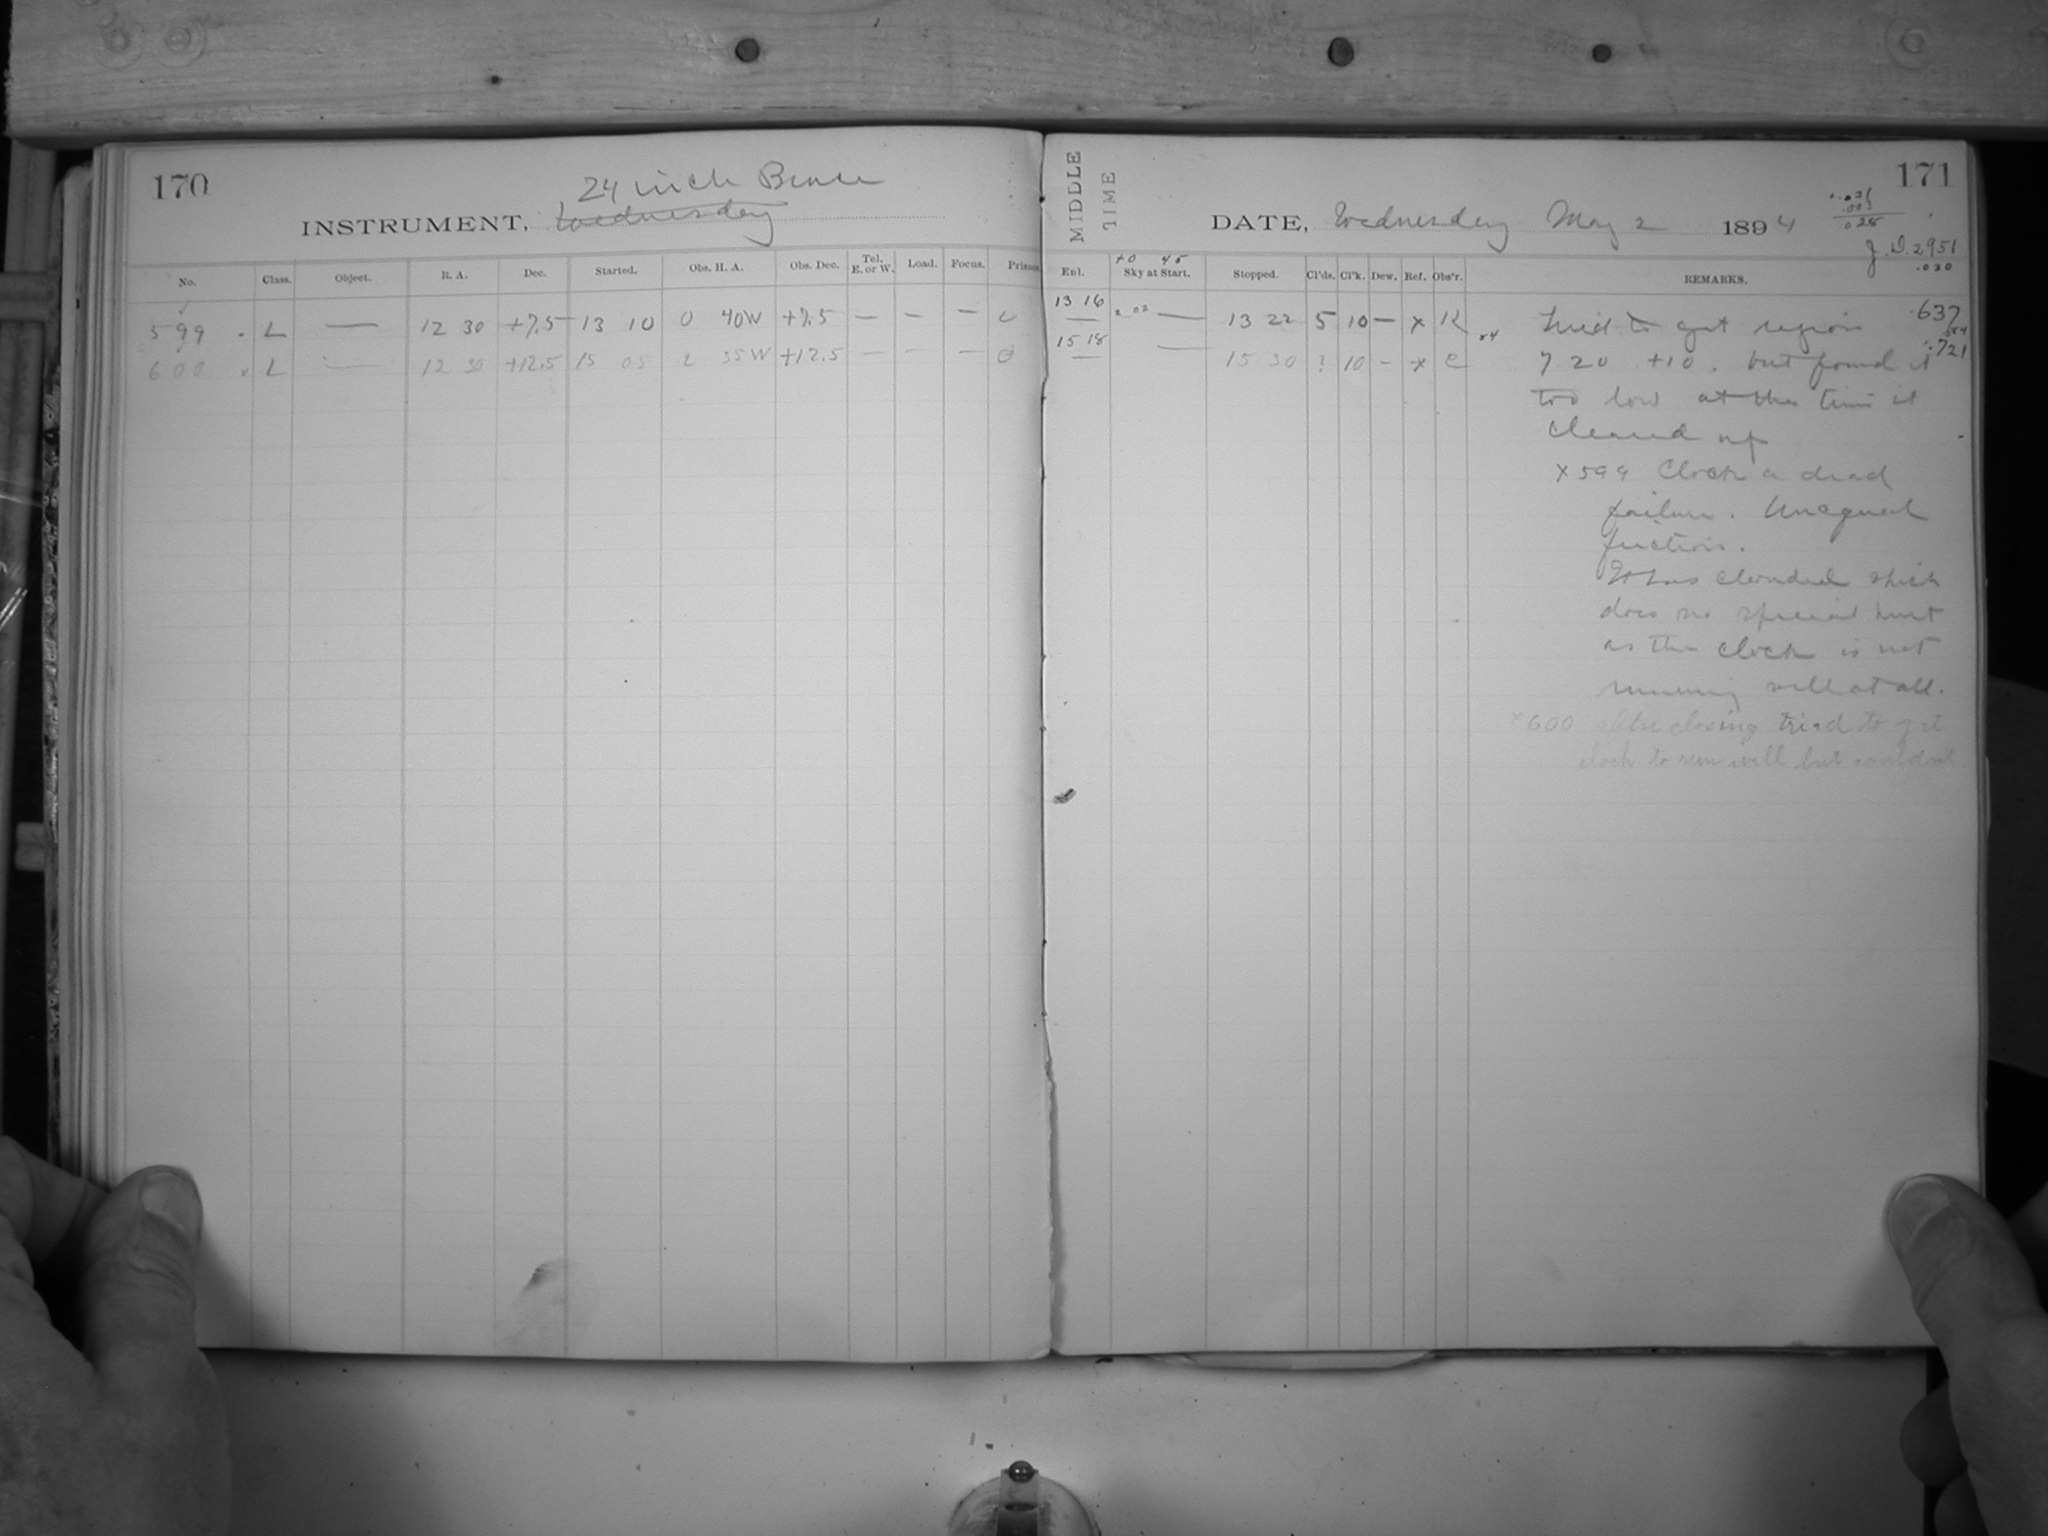 170
24 inch Bruce
INSTRUMENT, Wednesday
No. Class. Object. R. A. Dec. Started. Obs. H. A. Obs. Dec. Tel. E. or W. Load. Focus. Prisms
599 L — 12 30 +7.5 13 10 0 40W +7.5 — — — 0
600 L — 12 30 +12.5 15 05 2 35W +12.5 — — — 0
MIDDLE TIME
171
DATE, Wednesday May 2 1894
.028
J.D. 2951
.030
+0 45
Exl. Sky at Start. Stopped. Cl'ds. Cl'k. Dew. Ref. Obs'r. REMARKS.
13 16 — 13 22 5 10 — x K
15 18 — 15 30 ? 10 — x C
.637
.721
Tried to get region
7 20 +10. but found it
too low at the time it
cleared up
x 599 Clock a dead
failure. Unequal
friction.
It has clouded which
does no special hurt
as the clock is not
running well at all.
x 600 after closing tried to get
clock to run well but couldn't